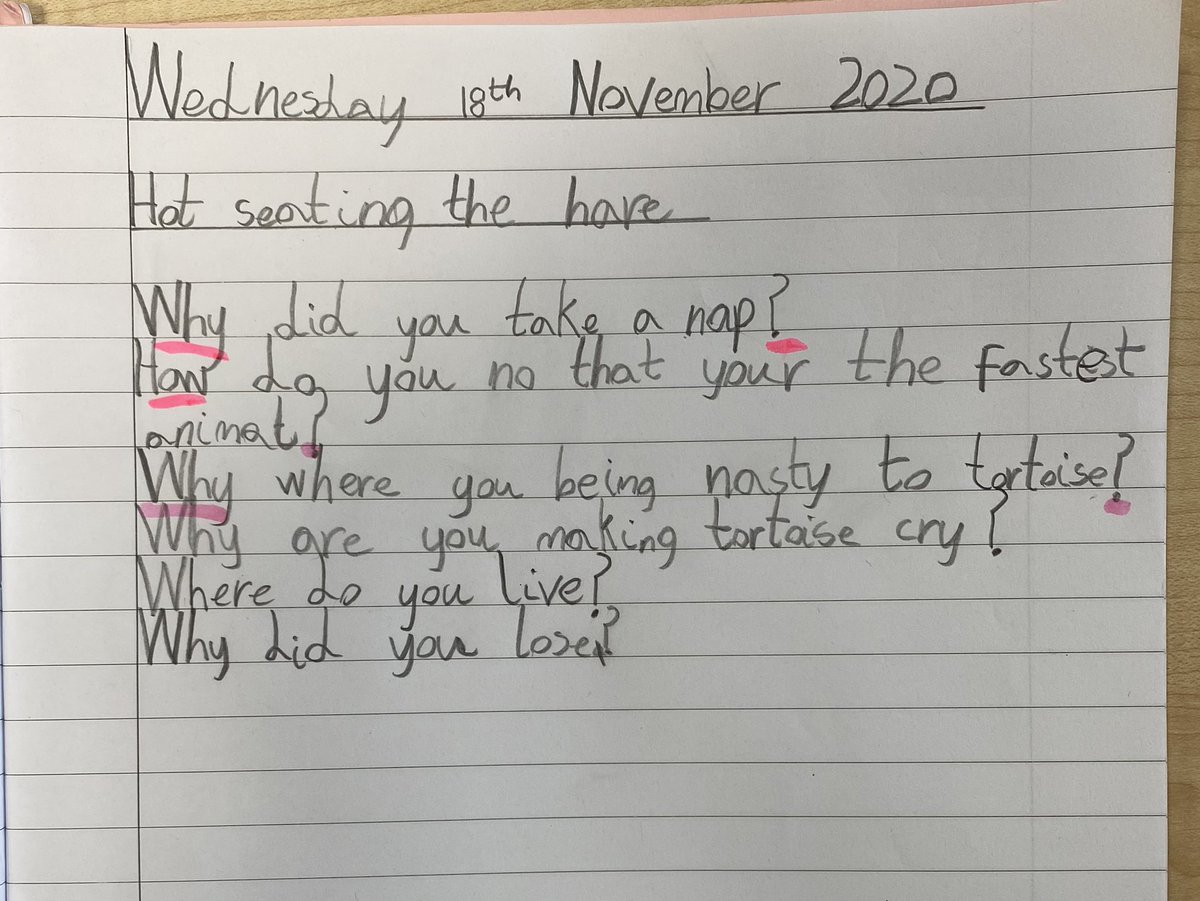 Wednesday 18th November 2020
Hot seating the hare
Why did you take a nap?
How do you no that your the fastest
animal?
Why where you being nasty to tortoise?
Why are you making tortoise cry?
Where do you live?
Why did you lose?